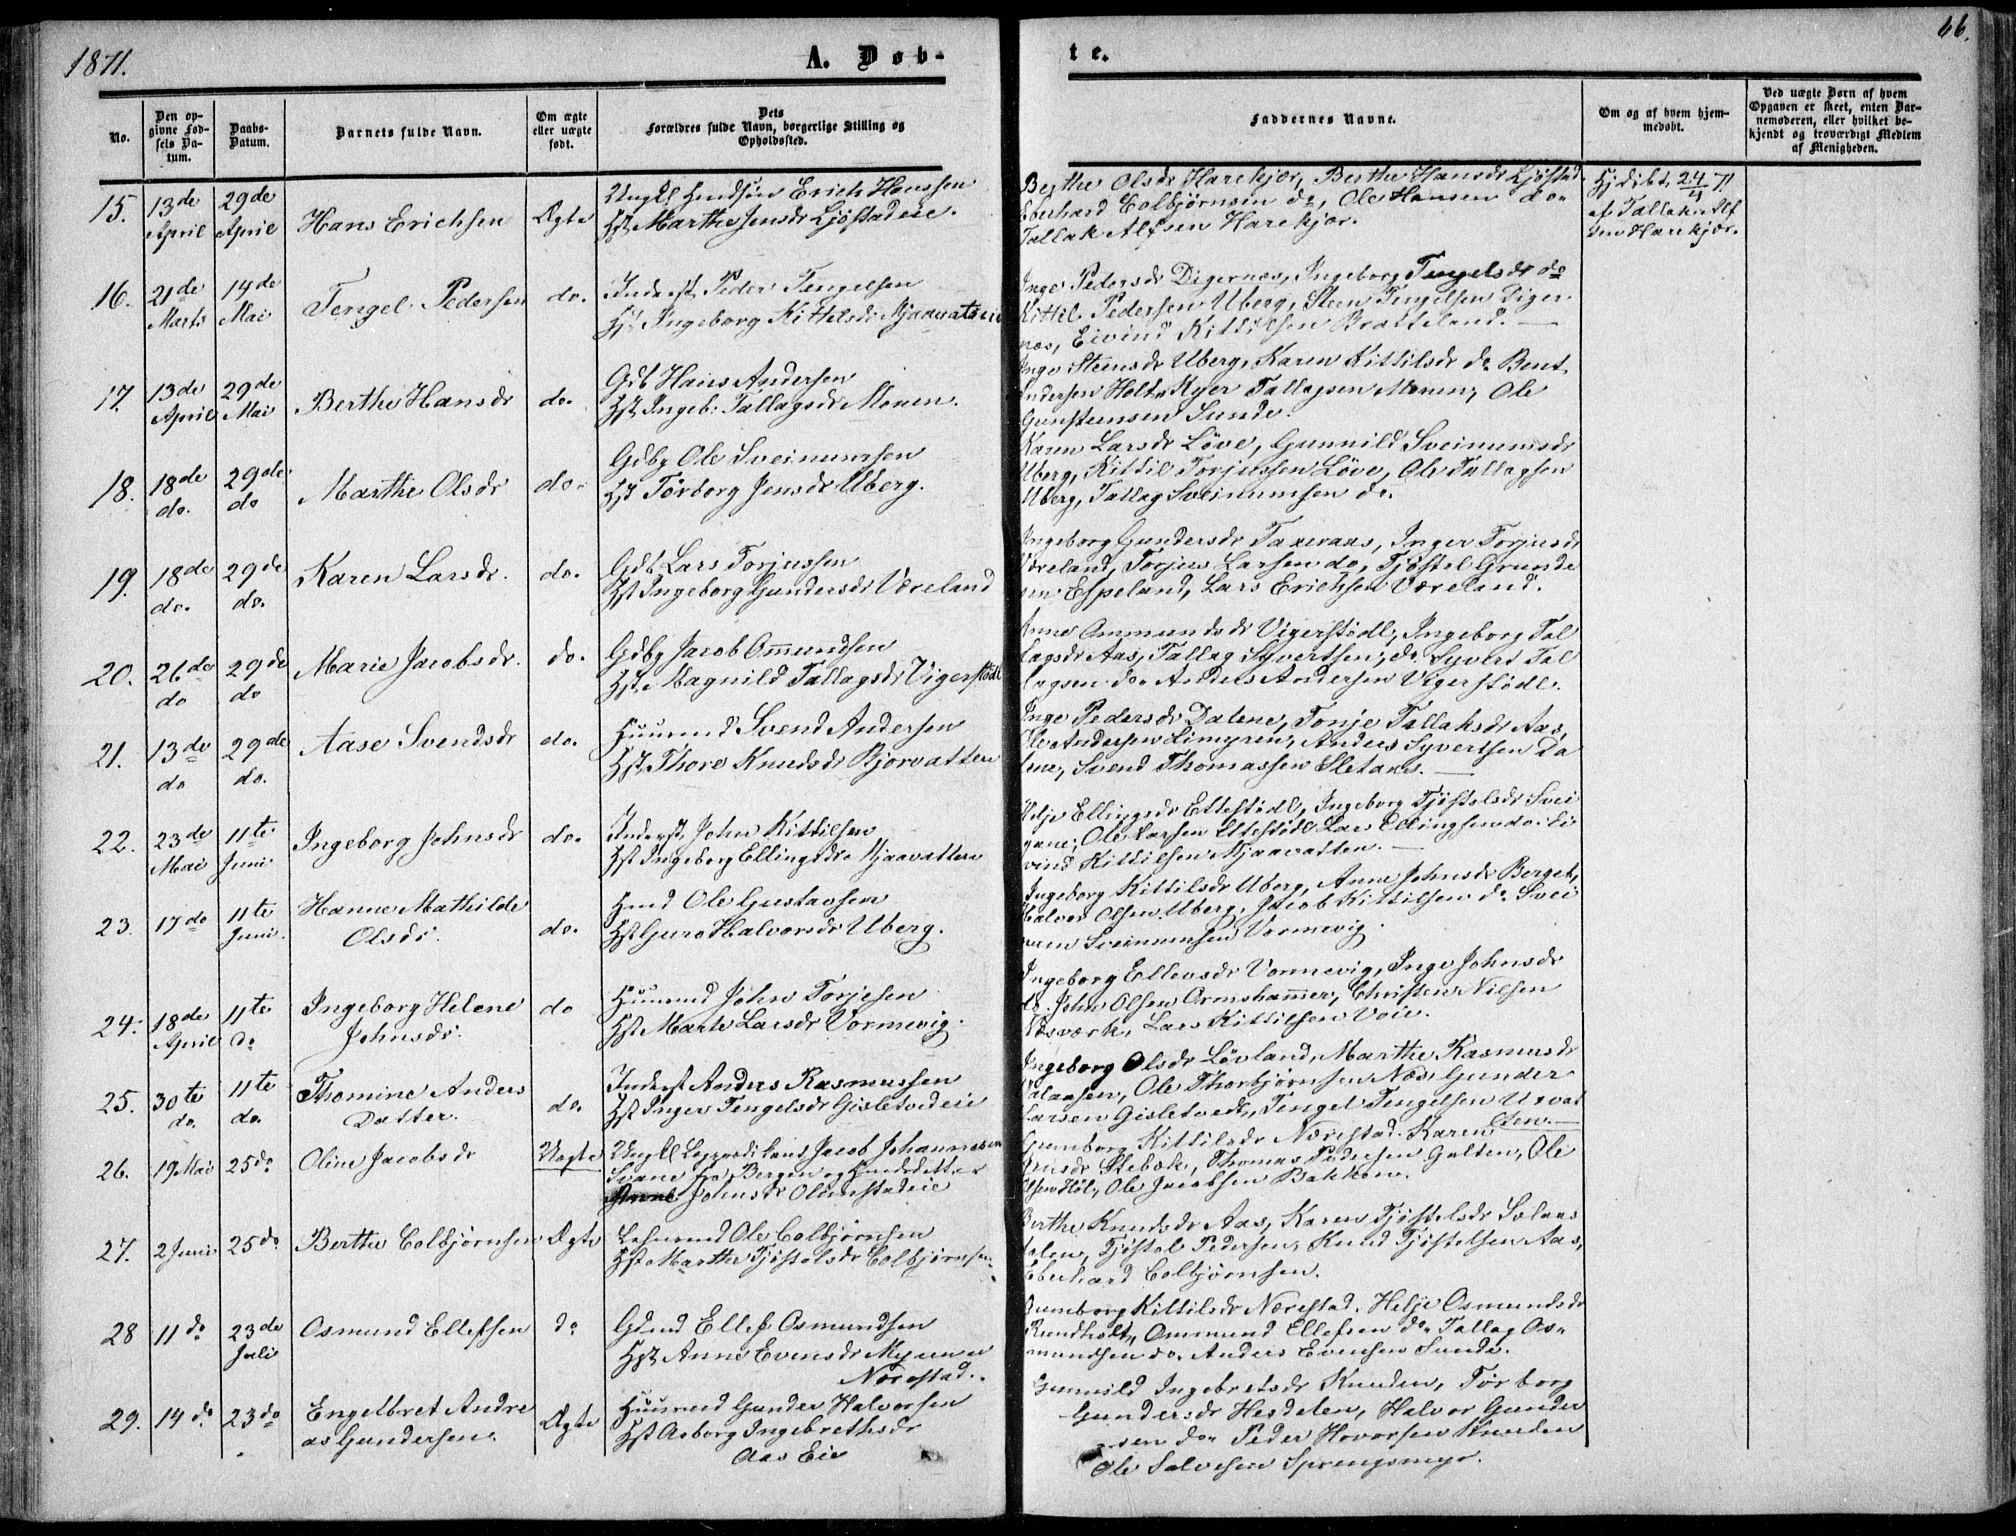 1871.
A. Døb-
te.
66.
No.
Den op-
givne Fød-
sels Da-
tum.
Daabs-
Datum.
Barnets fulde Navn.
Om ægte
eller uægte
født.
Dets
Forældres fulde Navn, borgerlige Stilling og
Opholdssted.
Faddernes Navne.
Om og af hvem hjem-
medøbt.
Ved uægte Børn af hvem
Opgaven er skeet, enten Bar-
nemoderen, eller hvilket be-
kjendt og troværdigt Medlem
af Menigheden.
15.
13de
April
29de
April
Hans Erichsen
Ægte
Erich Hanssen
Hst Marthe Jensdr Ljøstadeie.
Berthe Olsdr Harekjær, Berthe Hansdr Ljøstad
Eberhard Colbjørnsen do, Ole Hansen do
Tallak Alfsen Harekjær.
Hj. døbt 24/4 71
af Tallak Alf
sen Harekjær.
16.
21de
Marts
14de
Mai
Tengel Pedersen
do.
Inderst Peder Tengelsen
Hst Ingeborg Kittelsdr
Inge Pedersdr Digernæs, Ingeborg Tengelsdr do
Kittil Pedersen Uberg, Steen Tengelsen Diger
næs, Eivind Kittilsen Bratteland.
17.
13de
April
29de
Mai
Berthe Hansdr
do.
Gdb Hans Andersen
Hst Ingeb: Tallagsdr Monen.
Inge Steensdr Uberg, Karen Kittilsdr do Bent
Andersen Holt, Tallagsen Monen, Ole
Gunsteensen Sunde.
18.
18de
do.
29de
do
Marthe Olsdr
do.
Gdbg Ole Sveinumsen
Hst Torborg Jensdr Uberg.
Karen Larsdr Løve, Gunnild Sveinumsdr
Uberg, Kittil Torjussen Løve, Ole Tallagsen
Uberg, Tallag Sveinumsen do.
19.
18de
do.
29de
do.
Karen Larsdr.
do.
Gdb Lars Torjussen
Hst Ingeborg Gundersdr Væreland
Ingeborg Gundersdr Inger Torjusdr
Væreland, Torjus Larsen do, Tjøstel Grunde
sen Espeland, Lars Erichsen Væreland.
20.
26de
do
29de
do
Marie Jacobsdr.
do.
Gdbg Jacob Ommundsen
Hst. Magnild Tallagsdr Vigerstødl
Anne Ommundsdr Vigerstødl, Ingeborg Tal
lagsdr Aas, Tallag Syvertsen, do. Syvert Tal
lagsen do. Anders Andersen Vigerstødl.
21.
13de
do
29de
do.
Aase Svendsdr
do.
Huusmd Svend Andersen
Hst. Thore Knudsdr Bjorvatten
Inge Pedersdr Dalene, Tonje Tallaksdr Aas,
Ole Andersen Limyren, Anders Syvertsen Da
lene, Svend Thomassen Sletaas.
22.
23de
Mai
11te
Juni
Ingeborg Johnsdr
do.
Inderst, John Kittilsen
Hst Ingeborg Ellingsdr Mjaavatten
Helje Ellingsdr Ettestødl, Ingeborg Tjøstelsdr Svei
gane, Ole Larsen Ettestødl Lars Ellingsen do. Ei
vind Kittilsen Mjaavatten.
23.
17do
11te
Juni.
Hanne Mathilde
Olsdr.
do.
Hmd Ole Gustavsen
Hst Guro Halvorsdr Uberg.
Ingeborg Kittilsdr Uberg, Anne Johnsdr Berget,
Halvor Olsen Uberg, Jacob Kittilsen do Svei
num Sveinumsen Vormevig.
24.
18de
April
11te
do
Ingeborg Helene
Johnsdr.
do
Huusmd John Torjesen
Hst Marte Larsdr Vormevig.
Ingeborg Ellevsdr Vormevig, Inge Johnsdr
do. John Olsen Ormshammer, Christen Nilsen
Lars Kittilsen Voie.
25.
30te
do.
11te
do.
Thomine Anders
Datter.
do.
Inderst Anders Rasmussen
Hst Inger Tengelsdr Gisletvedeie
Ingeborg Olsdr Løvland, Marthe Rasmusdr
Ole Thorbjørnsen Næs, Gunder
Larsen Gisletvedt, Tengel Tengelsen Urvat
26.
19 Mai
25do
Oline Jacobsdr
Uægte
Jacob Johannesen
Svane fra Bergen og
Johnsdr Olimstadeie
Gunborg Kittilsdr Nærestad. Karen
Jensdr Stebek, Thomas Pedersen Galten, Ole
Olsen Høl, Ole Jacobsen Bakken.
27.
2 Juni
25do
Berthe Colbjørnsen
Ægte
Ole Colbjørnsen
Hst Marthe Tjøstelsdr Colbjørnsen
Berthe Knudsdr Aas, Karen Tjøstelsdr Solaas
dalen, Tjøstel Pedersen, Knud Tjøstelsen Aas,
Eberhard Colbjørnsen.
28
11 do
23de
Juli
Osmund Ellefsen
do
Gdmd Ellef Osmundsen
Hst Anne Evensdr Myren
Nærestad.
Gumborg Kittilsdr Nærestad. Helje Osmundsdr
Rundholt, Ommund Ellefsen do. Tallag Os-
mundsen do. Anders Evensen Sunde.
29.
14 do
23do
Engelbret Andre
as Gundersen.
Ægte
Huusmd Gunder Halvorsen
Hst Asborg Ingebrethsdr
Aas Eie
Gunnild Ingebretsdr Knuden, Torborg
Gundersdr Hesdelen, Halvor Gunder
sen do. Peder Hovorsen Knuden
Ole Salvesen Sprengsmyr.